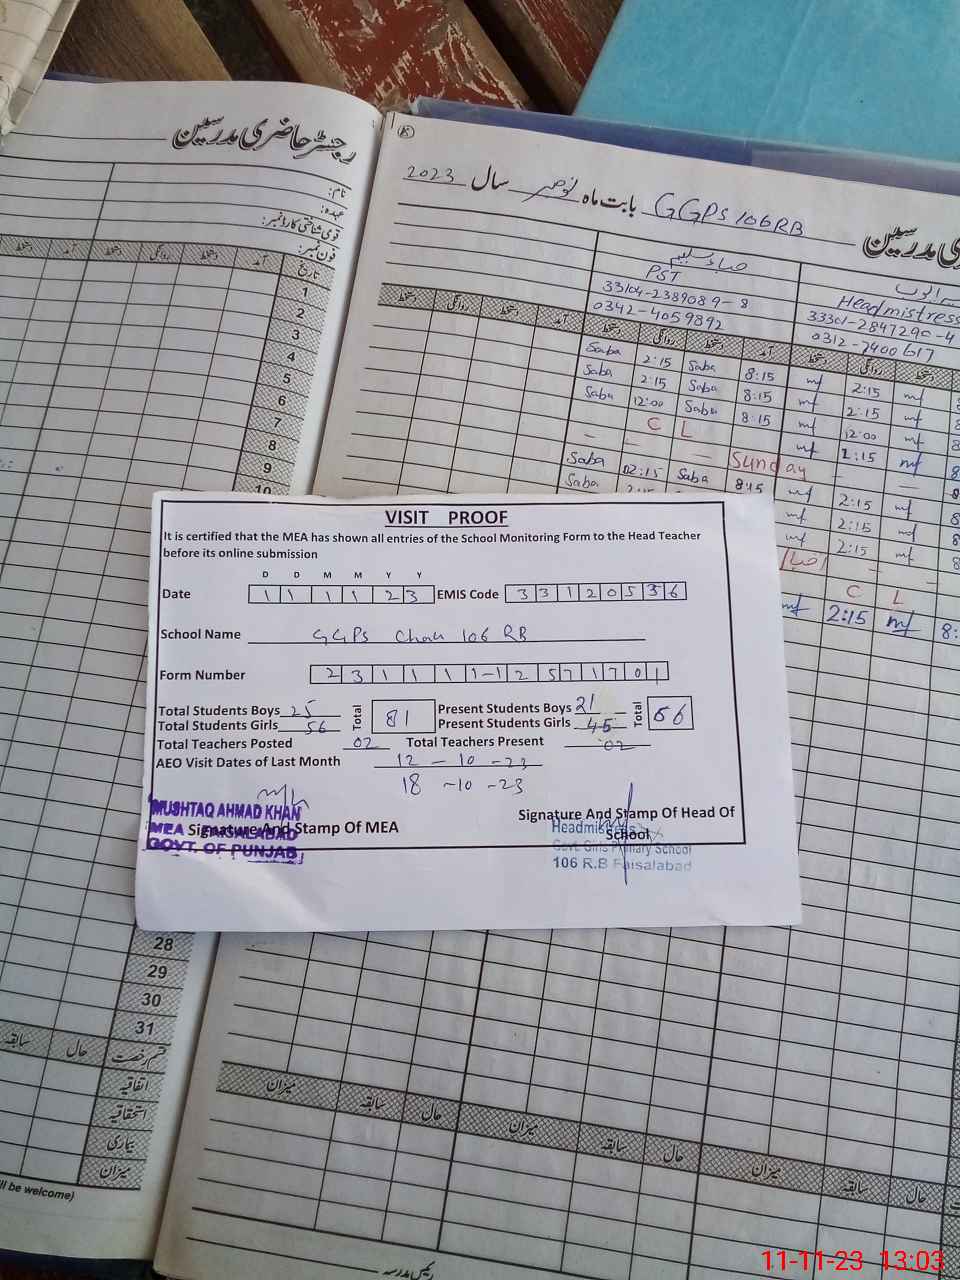 رجسٹر حاضری مدرسین
نام:
عہدہ:
قومی شناختی کارڈ نمبر:
فون نمبر:
تاریخ آمد دستخط روانگی دستخط آمد
1
2
3
4
5
6
7
8
9
10
28
29
30
31
قسم رخصت حال سابقہ
اتفاقیہ
استحقاقیہ
بیماری
میزان
ll be welcome)
2023 سال نومبر بابت ماہ GGPS 106RB
PST
33104-2389089-8
0342-4059892
Headmistress
33301-2847290-4
0312-7400617
دستخط روانگی دستخط آمد دستخط روانگی دستخط آمد دستخط روانگی دستخط
Saba 2:15 Saba 8:15 mf 2:15 mf
Saba 2:15 Saba 8:15 mf 2:15 mf
Saba 12:00 Saba 8:15 mf 12:00 mf
C L mf 2:15 mf
— — — Sunday — —
Saba 02:15 Saba 8:15 mf 2:15 mf
Saba mf 2:15 mf
mf 2:15 mf
C L
mf 2:15 mf 8:
VISIT PROOF
It is certified that the MEA has shown all entries of the School Monitoring Form to the Head Teacher
before its online submission
D D M M Y Y
Date 1 1 1 1 2 3 EMIS Code 3 3 1 2 0 5 3 6
School Name GGPS Chak 106 RB
Form Number 2 3 1 1 1 1-1 2 5 7 1 7 0 1
Total Students Boys 25 Total 81 Present Students Boys 21 Total 66
Total Students Girls 56 Present Students Girls 45
Total Teachers Posted 02 Total Teachers Present 02
AEO Visit Dates of Last Month 12-10-23
18-10-23
MUSHTAQ AHMAD KHAN
MEA FAISALABAD
GOVT. OF PUNJAB
Signature And Stamp Of MEA
Signature And Stamp Of Head Of
School
Headmistress
Govt. Girls Primary School
106 R.B Faisalabad
میزان سابقہ حال میزان سابقہ حال میزان سابقہ حال
رئیس مدرسہ
11-11-23 13:03